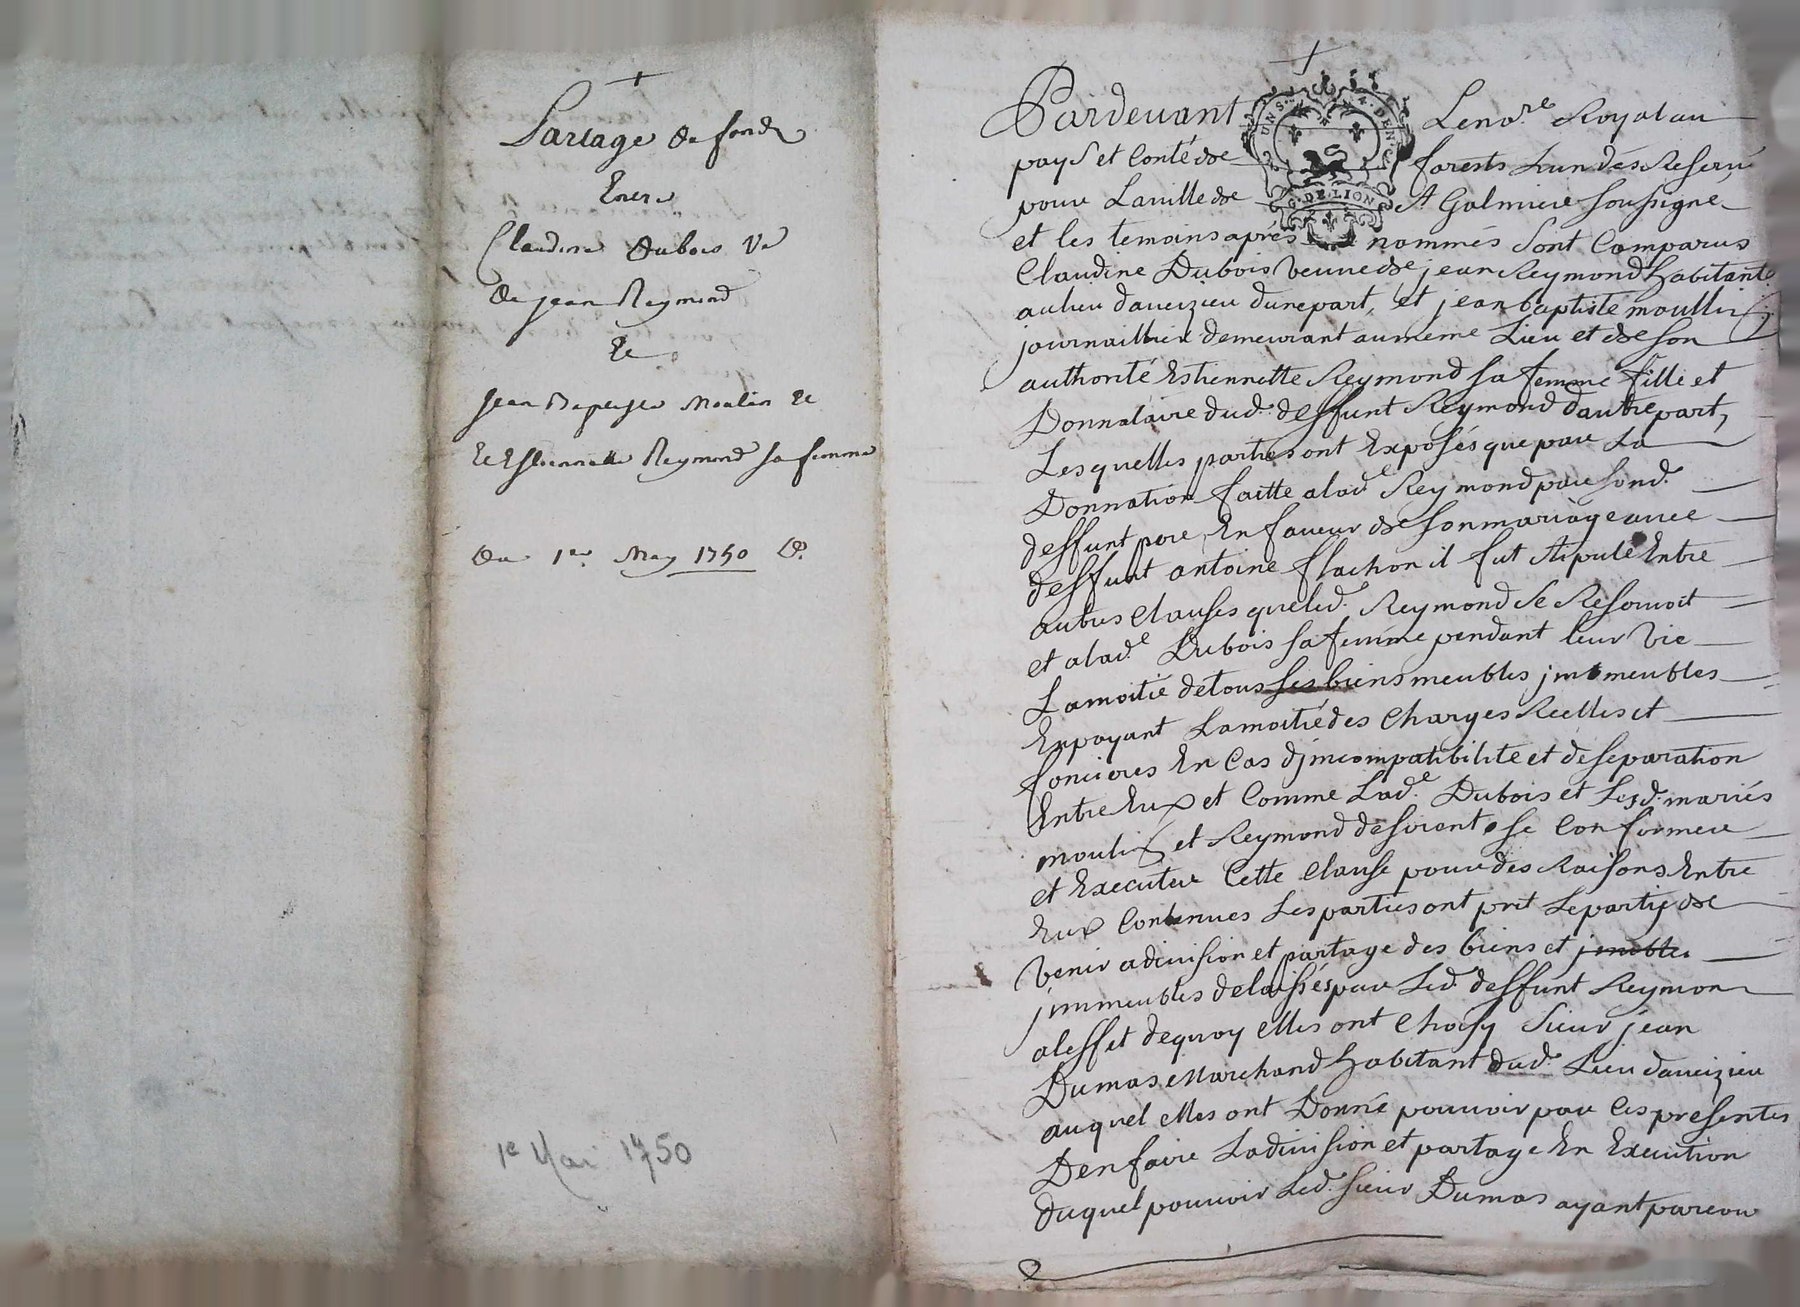 Partage de fonds
Entre
Claudine Dubois Ve
de jean Reymond
Et
Jean Baptiste Moulin Et
Et Estiennette Reymond sa femme
Du 1er. May 1750
1e Mai 1750
Pardevant Le nore. Royal au
pays et Conté de forests Lun des Reservé
pour La ville de St Galmier soussigné
et les temoins aprés nommés sont Comparus
Claudine Dubois veuve de jean Reymond habitante
au lieu daveizieu dune part, et jean baptiste moullin
journaillier demeurant au meme Lieu et de son
authorité Estiennette Reymond sa femme fille et
Donnataire dud. deffunt Reymond dautre part,
Lesquelles parties ont Exposés que par La
Donnation faitte a lade. Reymond par sond.
deffunt pere En faveur de son mariage avec
deffunt antoine flachon il fut stipulé Entre
autres Clauses que led. Reymond se Reservoit
et a lade. Dubois sa femme pendant leur vie
La moitié de tous ses biens meubles jmmeubles
En payant La moitié des Charges Reelles et
foncieres En Cas djncompatibilité et de separation
Entre Eux et Comme Lade. Dubois et Lesd. mariés
moulin et Reymond desirent se Conformer
et Executer Cette Clause pour des Raisons Entre
Eux Contenues Les parties ont prit Le party de
venir a division et partage des biens et
jmmeubles delaissés par Led. deffunt Reymon
a leffet de quoy elles ont Choisy Sieur jean
Dumas Marchand habitant dud. Lieu daveizieu
auquel elles ont Donné pouvoir par Ces presentes
Den faire La division et partage En Execution
duquel pouvoir Led. sieur Dumas ayant parcou
UNS
DEN
G. DE LION